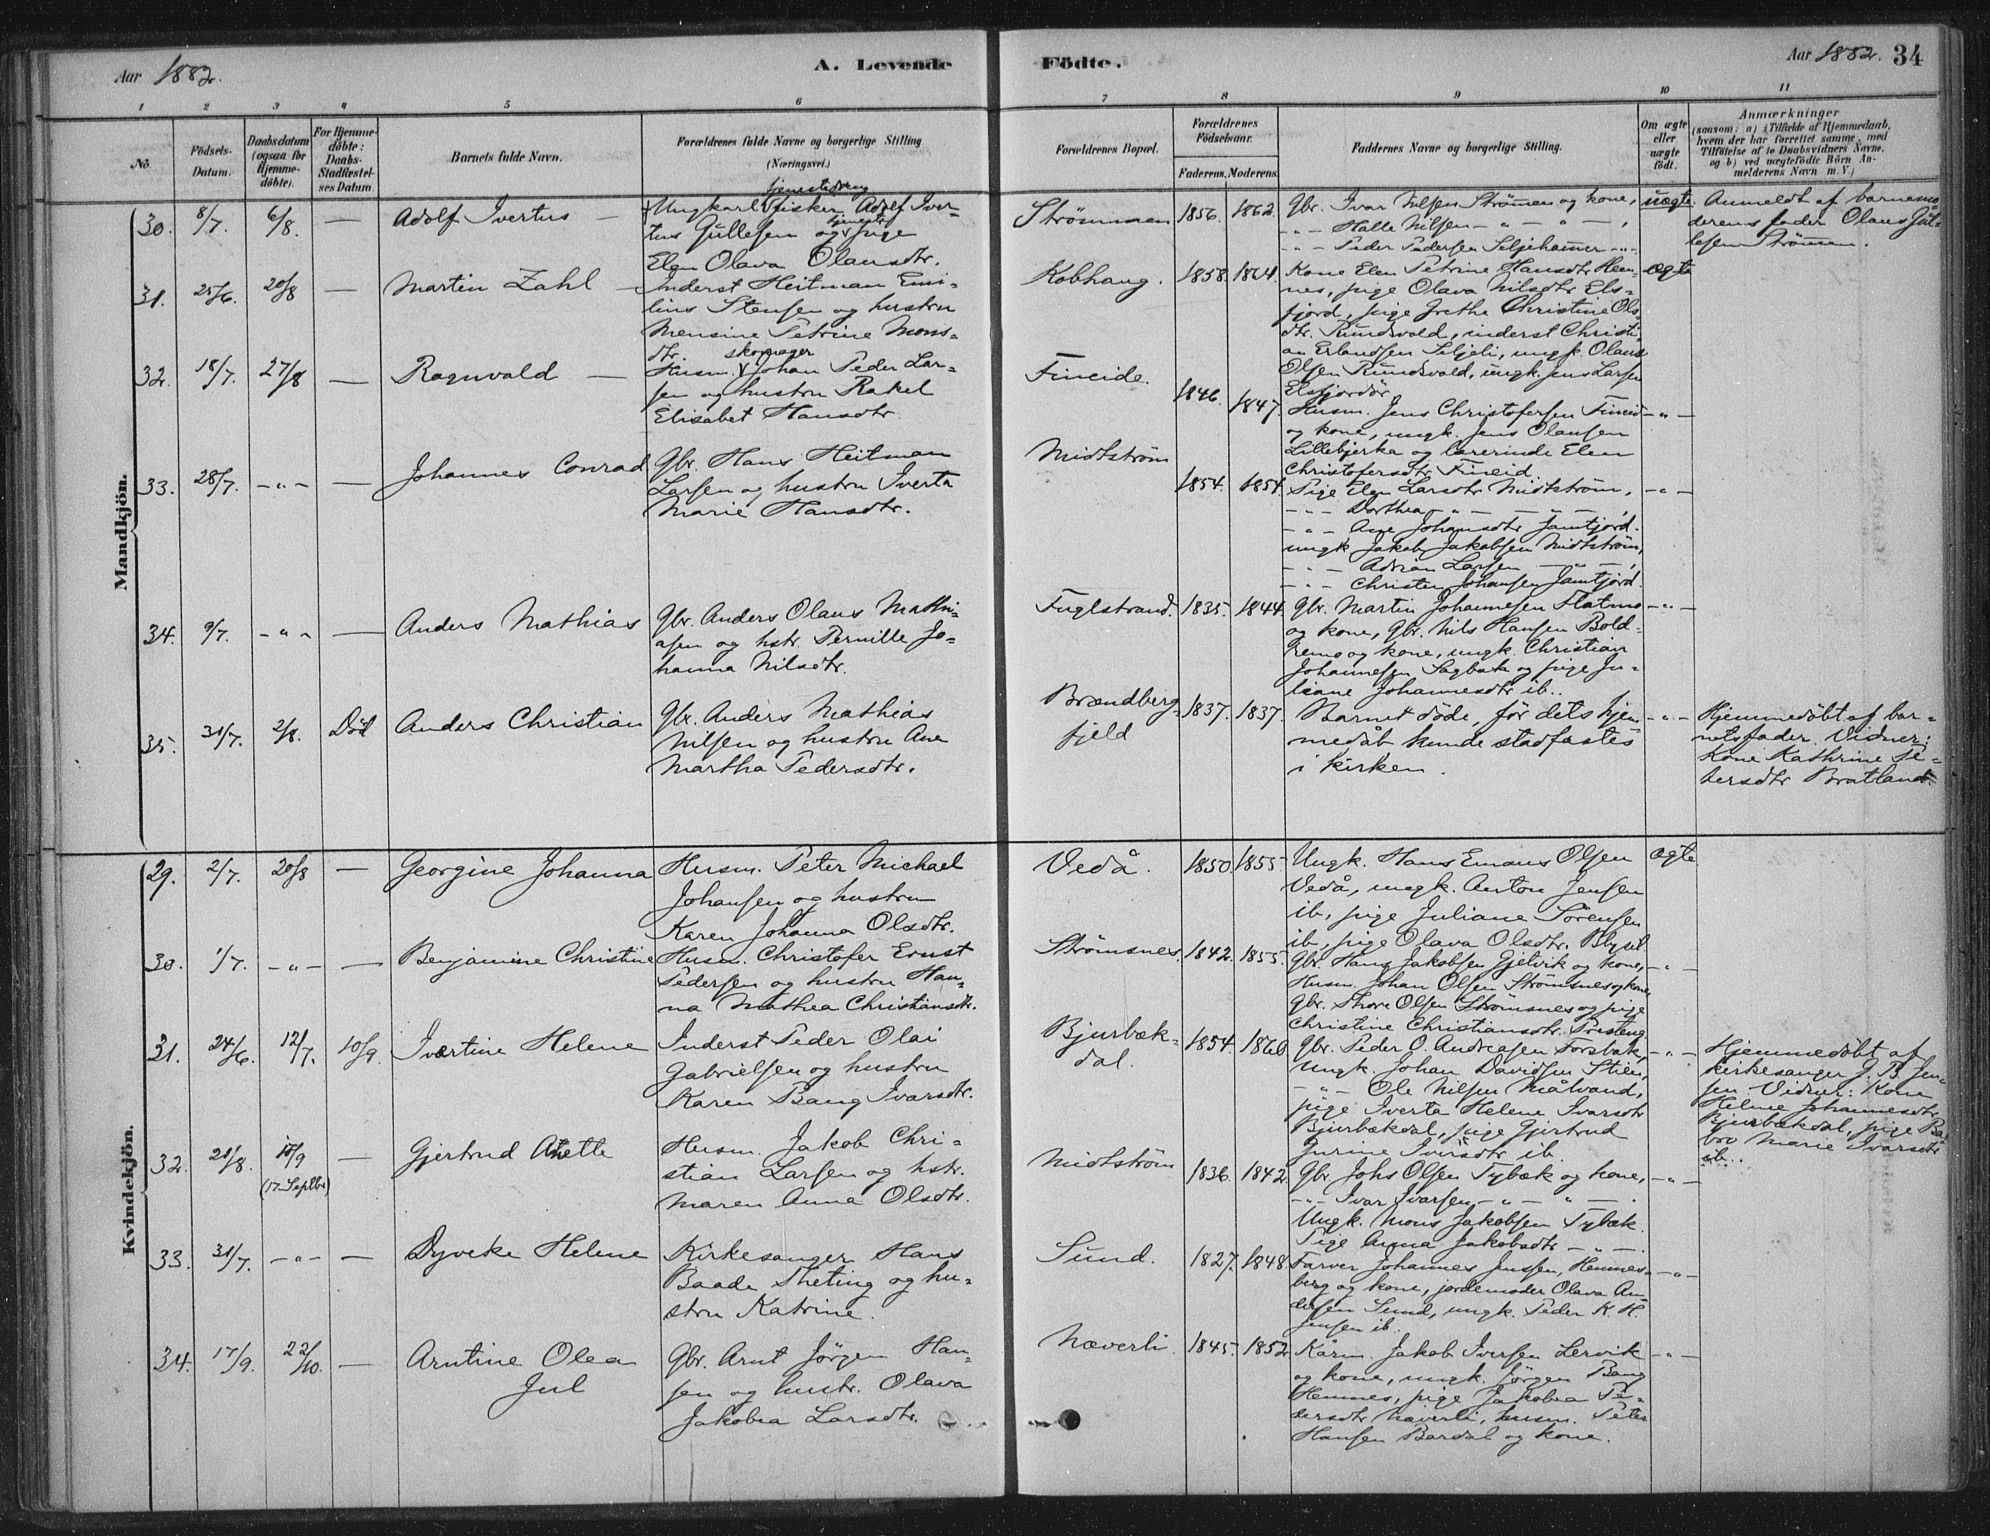 Aar 1882.
A. Levende Födte.
Aar 1882. 34
1 2 3 4 5 6 7 8 9 10 11
No.
Födsels-Datum.
Daabsdatum (ogsaa for Hjemmedöbte).
For Hjemmedöbte: Daabs-Stadfæstelses Datum.
Barnets fulde Navn.
Forældrenes fulde Navne og borgerlige Stilling (Næringsvei.)
Forældrenes Bopæl.
Forældrenes Födselsaar.
Faderens. Moderens.
Faddernes Navne og borgerlige Stilling.
Om ægte eller uægte födt.
Anmærkninger
(saasom: a) i Tilfælde af Hjemmedaab, hvem der har forrettet samme, med Tilföielse af to Daabsvidners Navne, og b) ved uægtefödte Börn Anmelderens Navn m. V.)
Mandkjön.
30. 8/7. 6/8. — Adolf Ivertus —
tjenestedreng
Ungkarl Fisker Adolf Iver-
tus Gullesen og pige
Elen Olava Olausdtr.
Strømmen 1856. 1862.
Gbr. Ivar Nilsen Strømmen og kone,
" - Halle Nilsen - " " - ,
" - Peder Pedersen Seljehammer - " -
uægte
Anmeldt af barnemo-
derens fader Olaus Jul-
lesen Strømmen.
31. 25/6. 20/8 — Martin Zahl —
Inderst Heitman Emi-
lius Stensen og hustru
Mensine Petrine Mons-
dtr.
Kobhaug. 1858. 1864.
Kone Elen Petrine Hansdtr. Hem-
nes, pige Olava Nilsdtr Els-
fjord, pige Grethe Christine Ols-
dtr. Rundsvold, inderst Christi-
an Erlandsen Seljeli, ungk. Olaus
Olsen Rundsvald, ungk. Jens Larsen
Elsfjordør.
ægte
32. 18/7. 27/8 — Ragnvald —
skomager
Husm. Johan Peder Lar-
sen og hustru Rakel
Elisabet Hansdtr.
Fineide. 1846. 1847.
Husm. Jens Christofersen Fineid
og kone, ungk. Jens Olausen
Lillebjerka og lærerinde Elen
Christofersdtr. Fineid.
- " -
33. 28/7. - " - — Johannes Conrad
Gbr. Hans Heitman
Larsen og hustru Iverta
Marie Hansdtr.
Midtstrøm 1854. 1854.
Pige Elen Larsdtr Midtstrøm,
- " - Dorthea - " - " - ,
- " - Ane Johansdtr Jamtjord.
ungk Jakob Jakobsen Midtstrøm,
- " - Adrian Larsen - " - ,
- " - Christen Johansen Jamtjord.
- " -
34. 9/7. - " - — Anders Mathias
Gbr. Anders Olaus Mathi-
asen og hstr. Pernille Jo-
hanna Nilsdtr.
Fuglstrand. 1835. 1844.
Gbr. Martin Johannesen Flatmo
og kone, Gbr. Nils Hansen Bold-
remo og kone, ungk. Christian
Johannesen Sagbak og pige Ju-
liane Johannesdtr ib.
- " -
35. 31/7. 2/8. Död Anders Christian
Gbr. Anders Mathias
Nilsen og hustru Ane
Martha Pedersdtr.
Brændberg-
fjeld 1837. 1837.
Barnet døde, før dets hjem-
medåb kunde stadfæstes
i kirken.
- " -
Hjemmedöbt af bar-
nets fader. Vidner:
Kone Kathrine Pe-
dersdtr Bratland.
Kvindekjön.
29. 2/7. 20/8 — Georgine Johanna
Husm. Peter Michael
Johansen og hustru
Karen Johanna Olsdtr.
Vedå. 1850. 1855
Ungk. Hans Emans Olsen
Vedå, ungk. Anton Jensen
ib, pige Juliane Sørensen
ib, pige Olava Olsdtr.
ægte
30. 1/7. - " - — Benjamine Christine
Husm. Christofer Ernst
Pedersen og hustru Han-
na Mathea Christiansdtr.
Strømsnes. 1842. 1855.
Gbr. Hans Jakobsen Gjetvik og kone,
Husm. Johan Olsen Strømsnes og kone,
Gbr. Thore Olsen Strømsnes og pige
Christine Christiansdtr. Presteng
- " -
31. 24/6. 12/7. 10/9. Ivertine Helene
Inderst Peder Olai
Gabrielsen og hustru
Karen Bang Ivarsdtr.
Bjurbæk-
dal. 1854. 1860.
Gbr. Peder O. Andreasen Forsbak,
Ungk. Johan Davidsen Stien,
- " - Ole Nilsen Målvand,
pige Iverta Helene Ivarsdtr
Bjurbækdal, pige Gjertrud
Gurine Iversdtr ib.
- " -
Hjemmedöbt af
kirkesanger J. B. Jen-
sen Vidner: Kone
Helene Johannesdtr
Bjurbækdal, pige Bar-
bro Marie Ivarsdtr
ib.
32. 20/8. 10/9 (17. Septbr) — Gjertrud Anette
Husm. Jakob Chri-
stian Larsen og hstr.
Maren Anna Olsdtr.
Midtstrøm 1836. 1842.
Gbr. Johs Olsen Tybæk og kone,
- " - Ivar Ivarsen - " - " - .
Ungk. Mons Jakobsen Tybæk.
Pige Anna Jakobsdtr - " - .
- " -
33. 31/7. - " - — Dyveke Helene
Kirkesanger Hans
Baade Theting og hu-
stru Katrine.
Sund. 1827. 1848.
Farver Johannes Jenssen, Hemnes-
berg og kone, jordemoder Olava An-
dersen Sund, ungk. Peder K. H.
Jensen ib.
- " -
34. 17/9. 22/10. — Arntine Olea
Jul
Gbr. Arnt Jørgen Han-
sen og hustr. Olava
Jakobea Larsdtr.
Næverli. 1845. 1852
Kårm. Jakob Iversen Lervik
og kone, ungk. Jørgen Bang
Hemnes, pige Jakobea Pe-
dersdtr Næverli, husm. Peter
Hansen Bardal og kone.
- " -